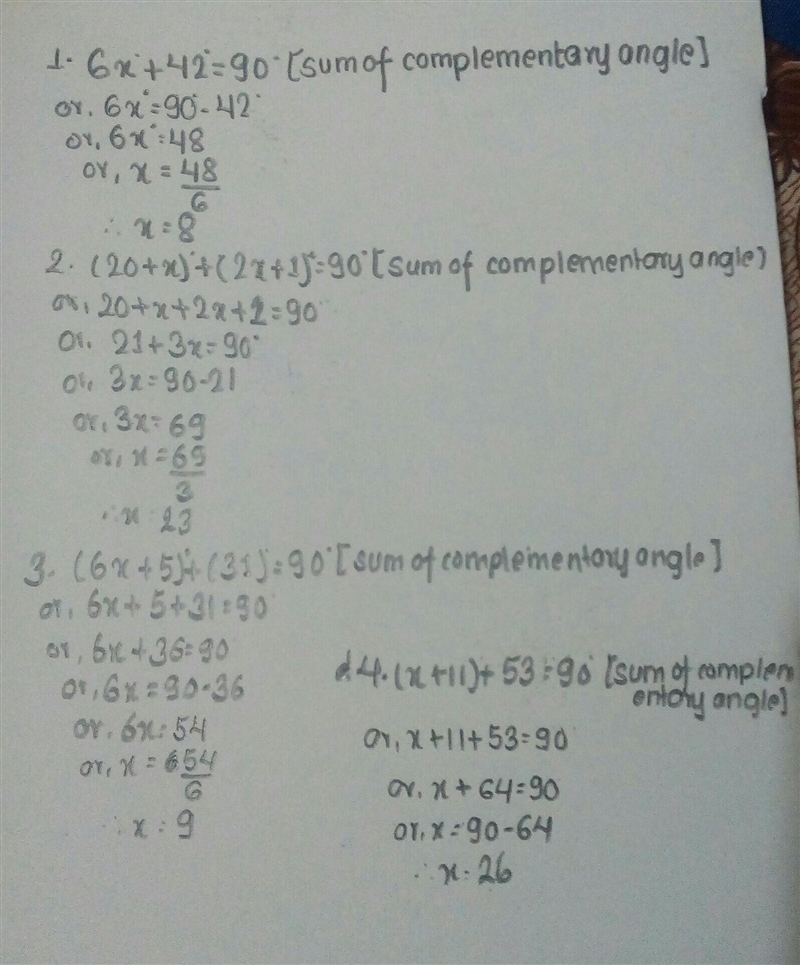 1. 6x°+42°=90° [sum of complementary angle]
or, 6x°=90°-42°
or, 6x°=48
or, x = 48/6
∴ x=8
2. (20+x)°+(2x+1)°=90° [sum of complementary angle)
or, 20+x+2x+1=90°
or, 21+3x=90°
or, 3x=90-21
or, 3x=69
or, x=69/3
∴ x 23
3. (6x+5)°+(31)°=90° [sum of complementary angle]
or, 6x+5+31=90
or, 6x+36=90
or, 6x=90-36
or, 6x=54
or, x = 54/6
∴ x = 9
4. (x+11)+53=90° [sum of complem
entary angle]
or, x+11+53=90
or, x+64=90
or, x=90-64
∴ x=26